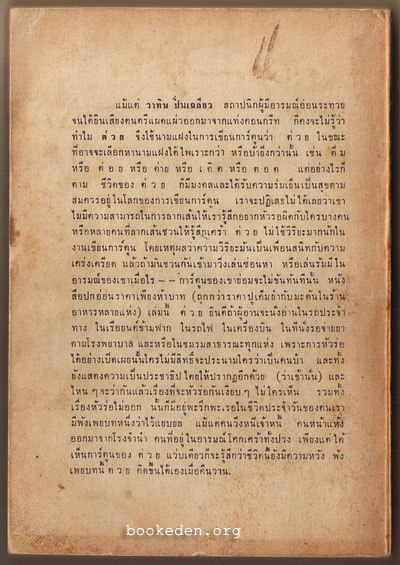 แม้แต่ วาทิน ปิ่นเฉลียว สถาปนิกผู้มีอารมณ์อ่อนระทวย
จนได้ยินเสียงดนตรีแผดแผ่วออกมาจากแท่งคอนกรีท ก็คงจะไม่รู้ว่า
ทำไม ต่วย จึงใช้นามแฝงในการเขียนการ์ตูนว่า ต่วย ในขณะ
ที่อาจจะเลือกหานามแฝงได้ไพเราะกว่า หรือบ้ายิ่งกว่านั้น เช่น ตึม
หรือ ต๋อย หรือ ต๋าย หรือ เติด หรือ ตอด แต่อย่างไรก็
ตาม ชีวิตของ ต่วย ก็มีมงคลและได้รับความร่มเย็นเป็นสุขตาม
สมควรอยู่ในโลกของการเขียนการ์ตูน เราจะปฏิเสธไม่ได้เลยว่าเขา
ไม่มีความสามารถในการลากเส้นให้เรารู้สึกอยากหัวร่อผิดกับใครบางคน
หรือหลายคนที่ลากเส้นชวนให้รู้สึกเศร้า ต่วย ไม่ใช้วิริยะมากนักใน
งานเขียนการ์ตูน โดยเหตุผลว่าความวิริยะมันเป็นเพื่อนสนิทกับความ
เคร่งเครียด แล้วถ้ามันชวนกันเข้ามาวิ่งเล่นซ่อนหา หรือเล่นรัมมี่ใน
อารมณ์ของเขาเมื่อไร -- การ์ตูนของเขาย่อมจะไม่ขันทันทีนั้น หนัง
สือปกอ่อนราคาเพียงห้าบาท (ถูกกว่าราคาปูเค็มยำกับมะดันในร้าน
อาหารหลายแห่ง) เล่มนี้ ต่วย ยินดีถ้าผู้อ่านจะนั่งอ่านในรถประจำ
ทาง ในเรือยนต์ข้ามฟาก ในรถไฟ ในเครื่องบิน ในที่นั่งรอจ่ายยา
ตามโรงพยาบาล และหรือในชมรมสาธารณะทุกแห่ง เพราะการหัวร่อ
ได้อย่างเปิดเผยนั้นใครไม่มีสิทธิ์จะประนามใครว่าเป็นคนบ้า และทั้ง
ยังแสดงความเป็นประชาธิปไตยให้ปรากฏอีกด้วย (ว่าเข้านั่น) และ
ไหน ๆ จะว่ากันแล้วเรื่องที่จะหัวร่อกันเงียบ ๆ ไม่ใครเห็น รวมทั้ง
เรื่องหัวร่อไม่ออก นั้นก็มีอยู่พะรึกพะเรอในชีวิตประจำวันของคนเรา
มีพังเพยบทหนึ่งว่าไว้แยบยล แม้แต่คนวิ่งหนีเจ้าหนี้ คนหน้าแห้ง
ออกมาจากโรงจำนำ คนที่อยู่ในอารมณ์โศกเศร้าทั้งปวง เพียงแค่ได้
เห็นการ์ตูนของ ต่วย แวบเดียวก็จะรู้สึกว่าชีวิตนี้ยังมีความหวัง พัง
เพยบทนี้ ต่วย คิดขึ้นได้เองเมื่อคืนวาน.
bookeden.org